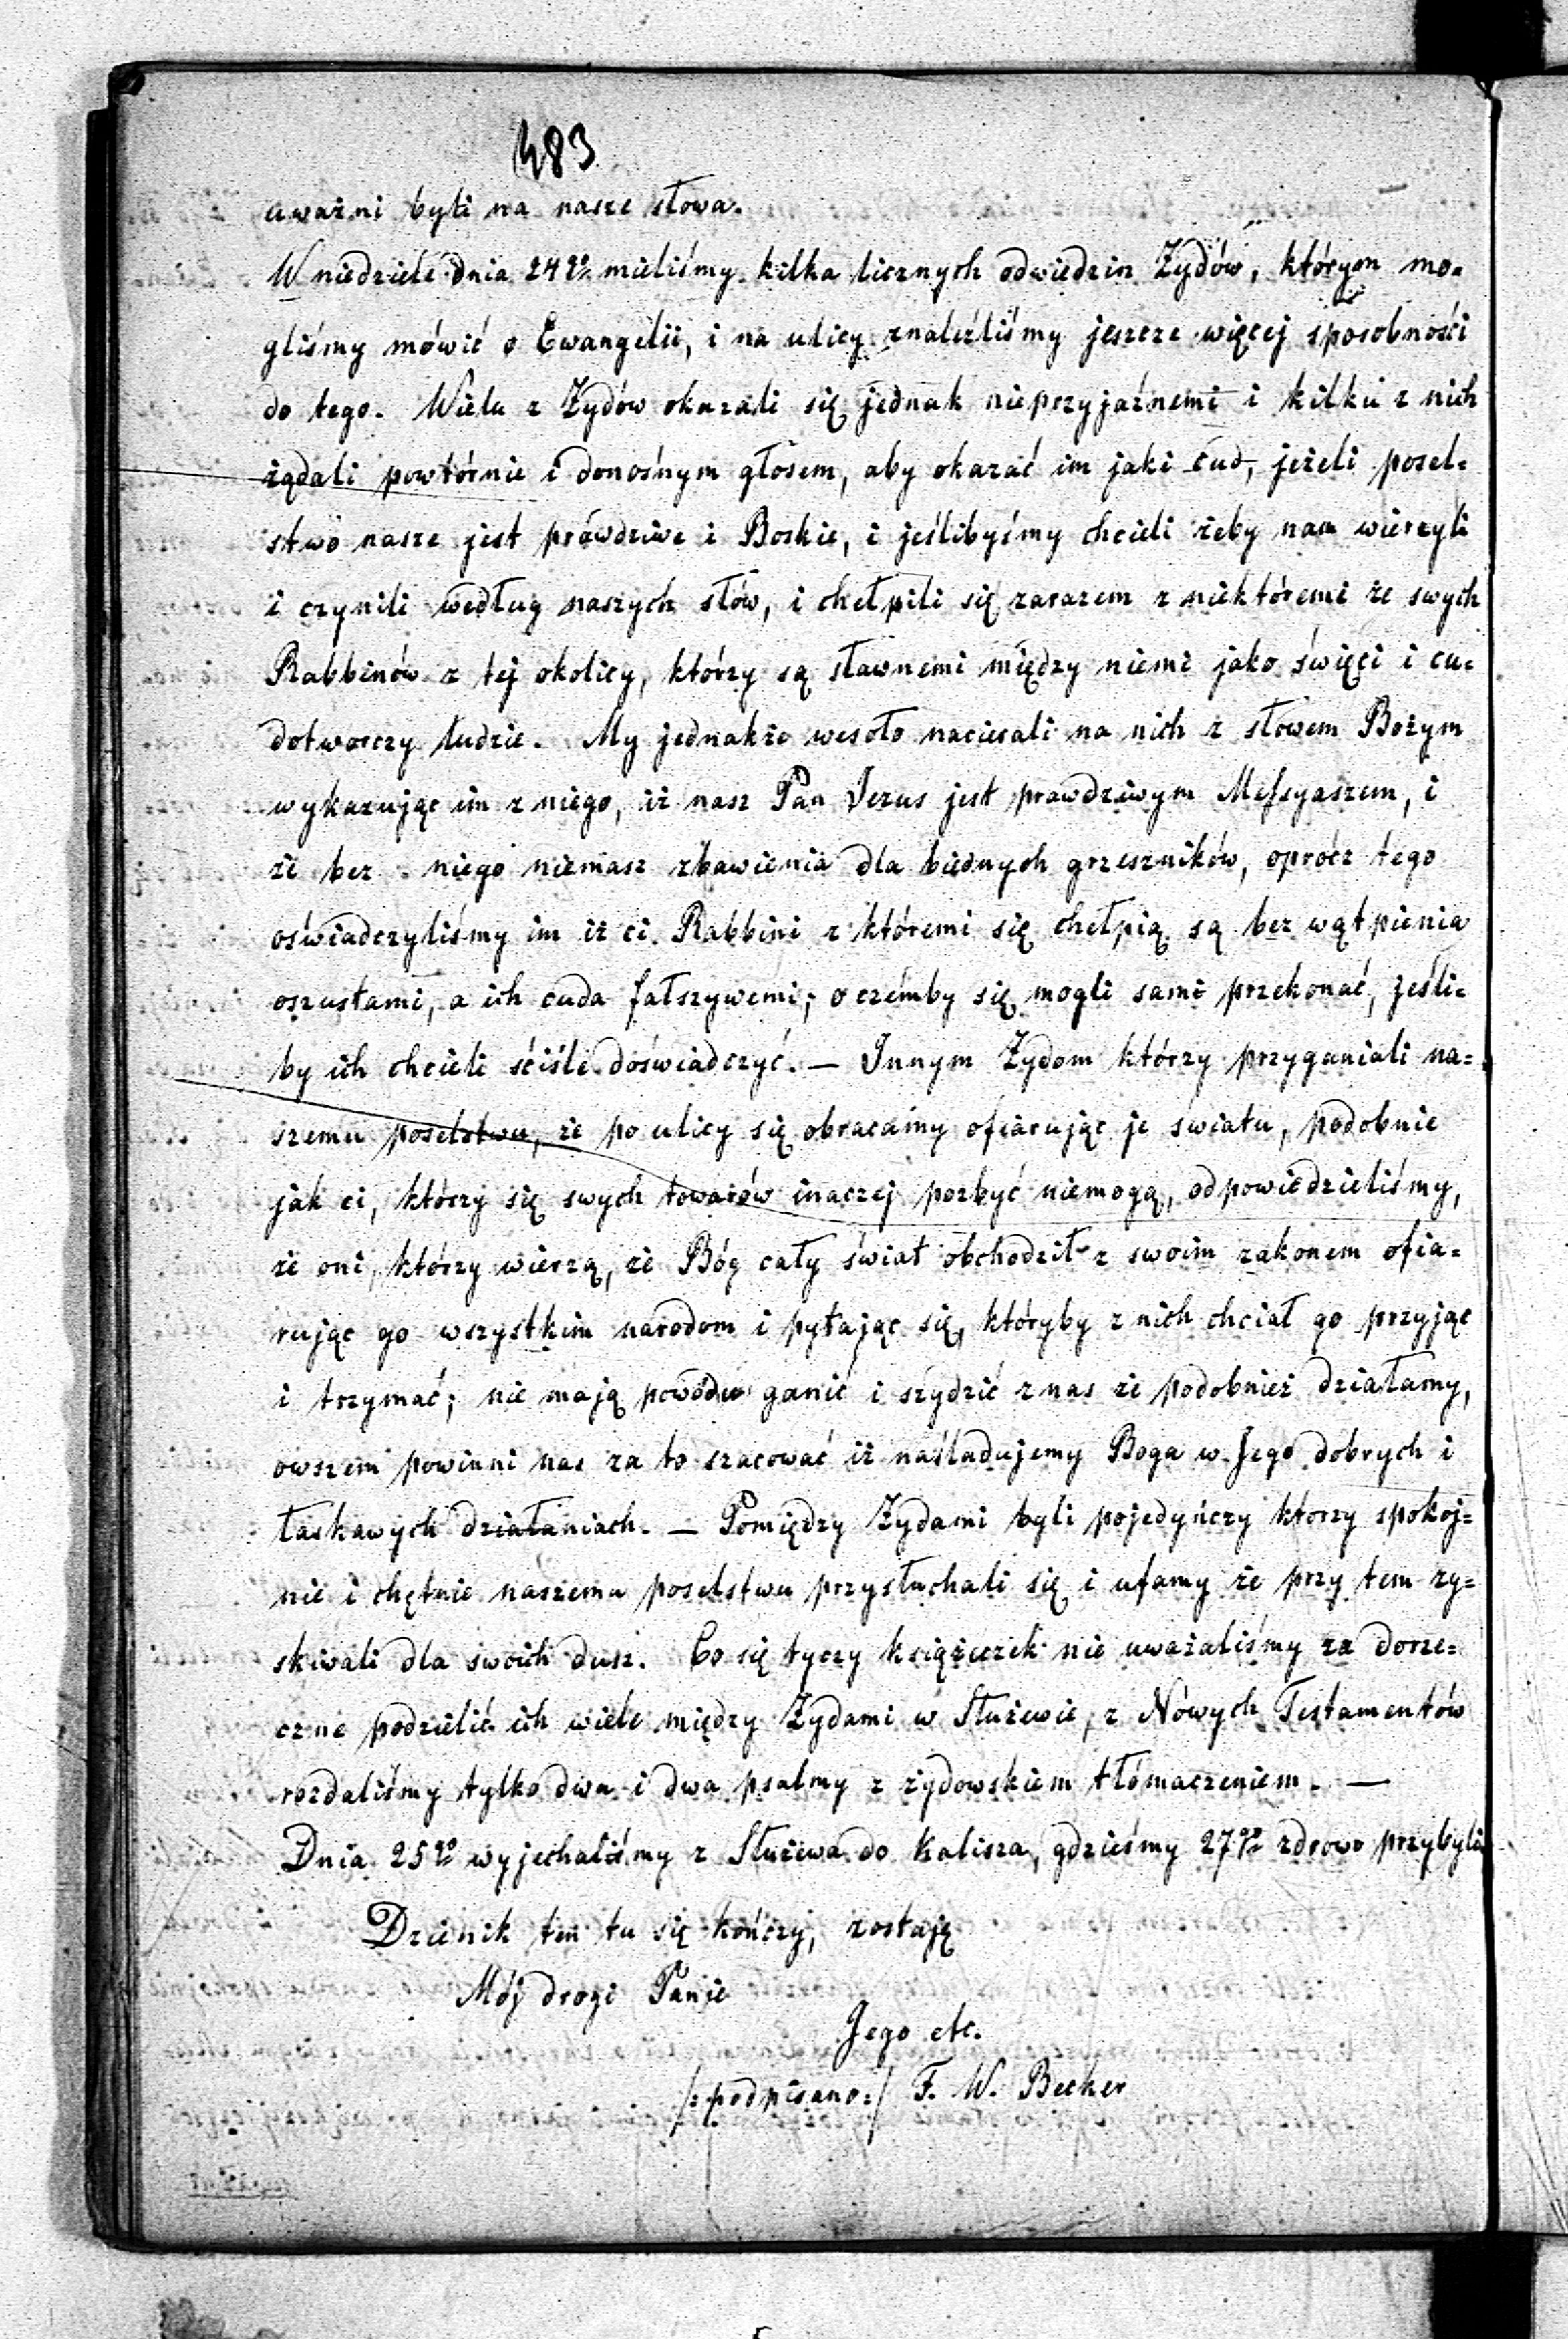 483
uważni byli na nasze słowa.
W niedziele dnia 24go mieliśmy kilka licznych odwiedzin Żydów, którym mo=
gliśmy mówić o Ewangelii, i na ulicy znaleźliśmy jeszcze więcej sposobności
do tego. Wielu z Żydów okazali się jednak nieprzyjaźnemi i kilku z nich
żądali powtórnie i donośnym głosem, aby okazać im jaki cud, jeżeli posel=
stwo nasze jest prawdziwe i Boskie, i jeślibyśmy chcieli żeby nam wierzyli
i czynili według naszych słów, i chełpili się zarazem z niektóremi ze swych
Rabbinów z tej okolicy, którzy są sławnemi między niemi jako święci i cu=
dotworczy ludzie. My jednakże wesoło nacierali na nich z słowem Bożym
wykazując im z niego, iż nasz Pan Jezus jest prawdziwym Messyaszem, i
że bez niego niemasz zbawienia dla biednych grzeszników, oprócz tego
oświadczyliśmy im iż ci Rabbini z któremi się chełpią są bez wątpienia
oszustami, a ich cuda fałszywemi; o czémby się mogli sami przekonać, jeśli=
by ich chcieli ściśle doświadczyć. — Innym Żydom którzy przyganiali na=
szemu poselstwu, że po ulicy się obracamy ofiarując je swiatu, podobnie
jak ci, którzy się swych towarów inaczej pozbyć niemogą, odpowiedzieliśmy,
że oni, którzy wierzą, że Bóg cały świat obchodził z swoim zakonem ofia=
rując go wszystkim narodom i pytając się, któryby z nich chciał go przyjąc
i trzymać; nie mają powodu ganić i szydzić z nas że podobnież działamy,
owszem powinni nas za to szacować iż naśladujemy Boga w Jego dobrych i
łaskawych działaniach. — Pomiędzy Żydami byli pojedyńczy ktorzy spokoj=
nie i chętnie naszemu poselstwu przysłuchali się i ufamy że przy tem zy=
skiwali dla swoich dusz. Co się tyczy książeczek nie uważaliśmy za dorze=
czne podzielić ich wiele między Żydami w Służewie, z Nowych Testamentów
rozdaliśmy tylko dwa i dwa psalmy z żydowskiem tłómaczeniem. —
Dnia 25go wyjechaliśmy z Służewa do Kalisza, gdzieśmy 27go zdrowo przybyli
Dzienik ten tu się kończy, zostaję
Mój drogi Panie
Jego etc.
/:podpisano:/ F. W. Becker